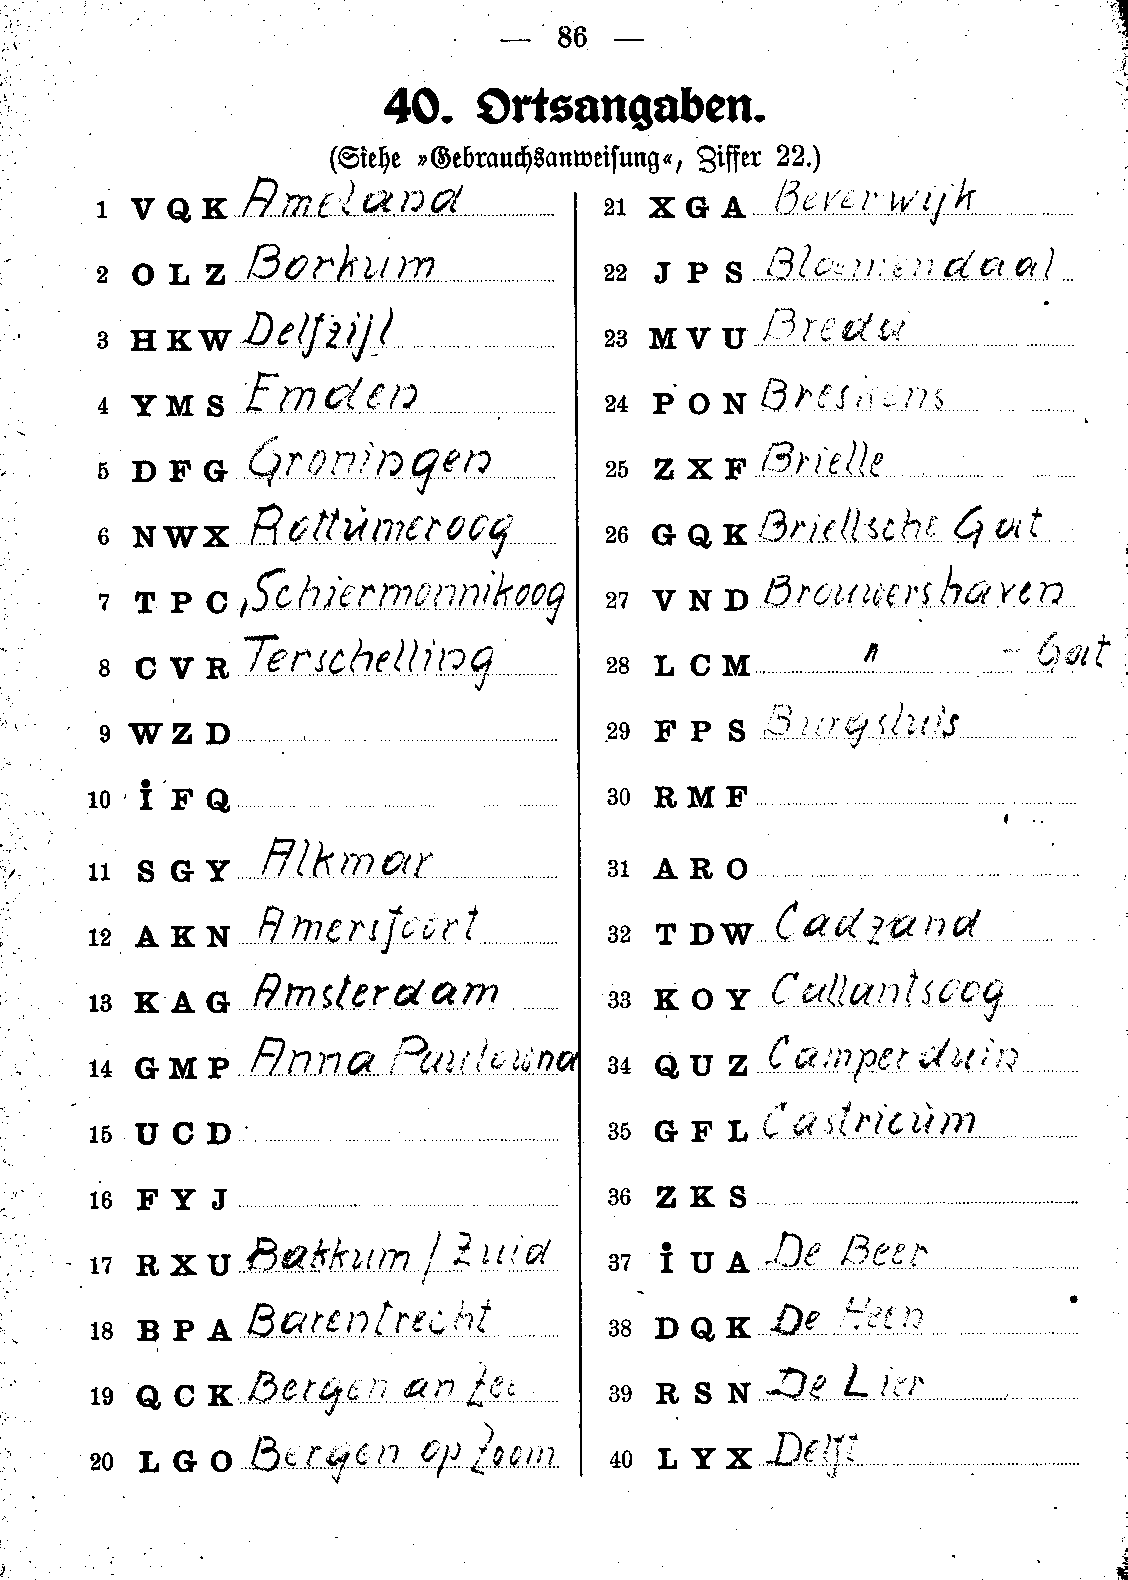 — 86 —
40. Ortsangaben.
(Siehe »Gebrauchsanweisung«, Ziffer 22.)
1 V Q K Ameland
2 O L Z Borkum
3 H K W Delfzijl
4 Y M S Emden
5 D F G Groningen
6 N W X Rottumeroog
7 T P C Schiermonnikoog
8 C V R Terschelling
9 W Z D
10 İ F Q
11 S G Y Alkmar
12 A K N Amersfoort
13 K A G Amsterdam
14 G M P Anna Paulowna
15 U C D
16 F Y J
17 R X U Bakkum / Zuid
18 B P A Barentrecht
19 Q C K Bergen an Zee
20 L G O Bergen op Zoom
21 X G A Beverwijk
22 J P S Bloemendaal
23 M V U Breda
24 P O N Breskens
25 Z X F Brielle
26 G Q K Briellsche Gat
27 V N D Brouwershaven
28 L C M " - Gat
29 F P S Burgsluis
30 R M F
31 A R O
32 T D W Cadzand
33 K O Y Callantsoog
34 Q U Z Camperduin
35 G F L Castricum
36 Z K S
37 İ U A De Beer
38 D Q K De Heen
39 R S N De Lier
40 L Y X Delft